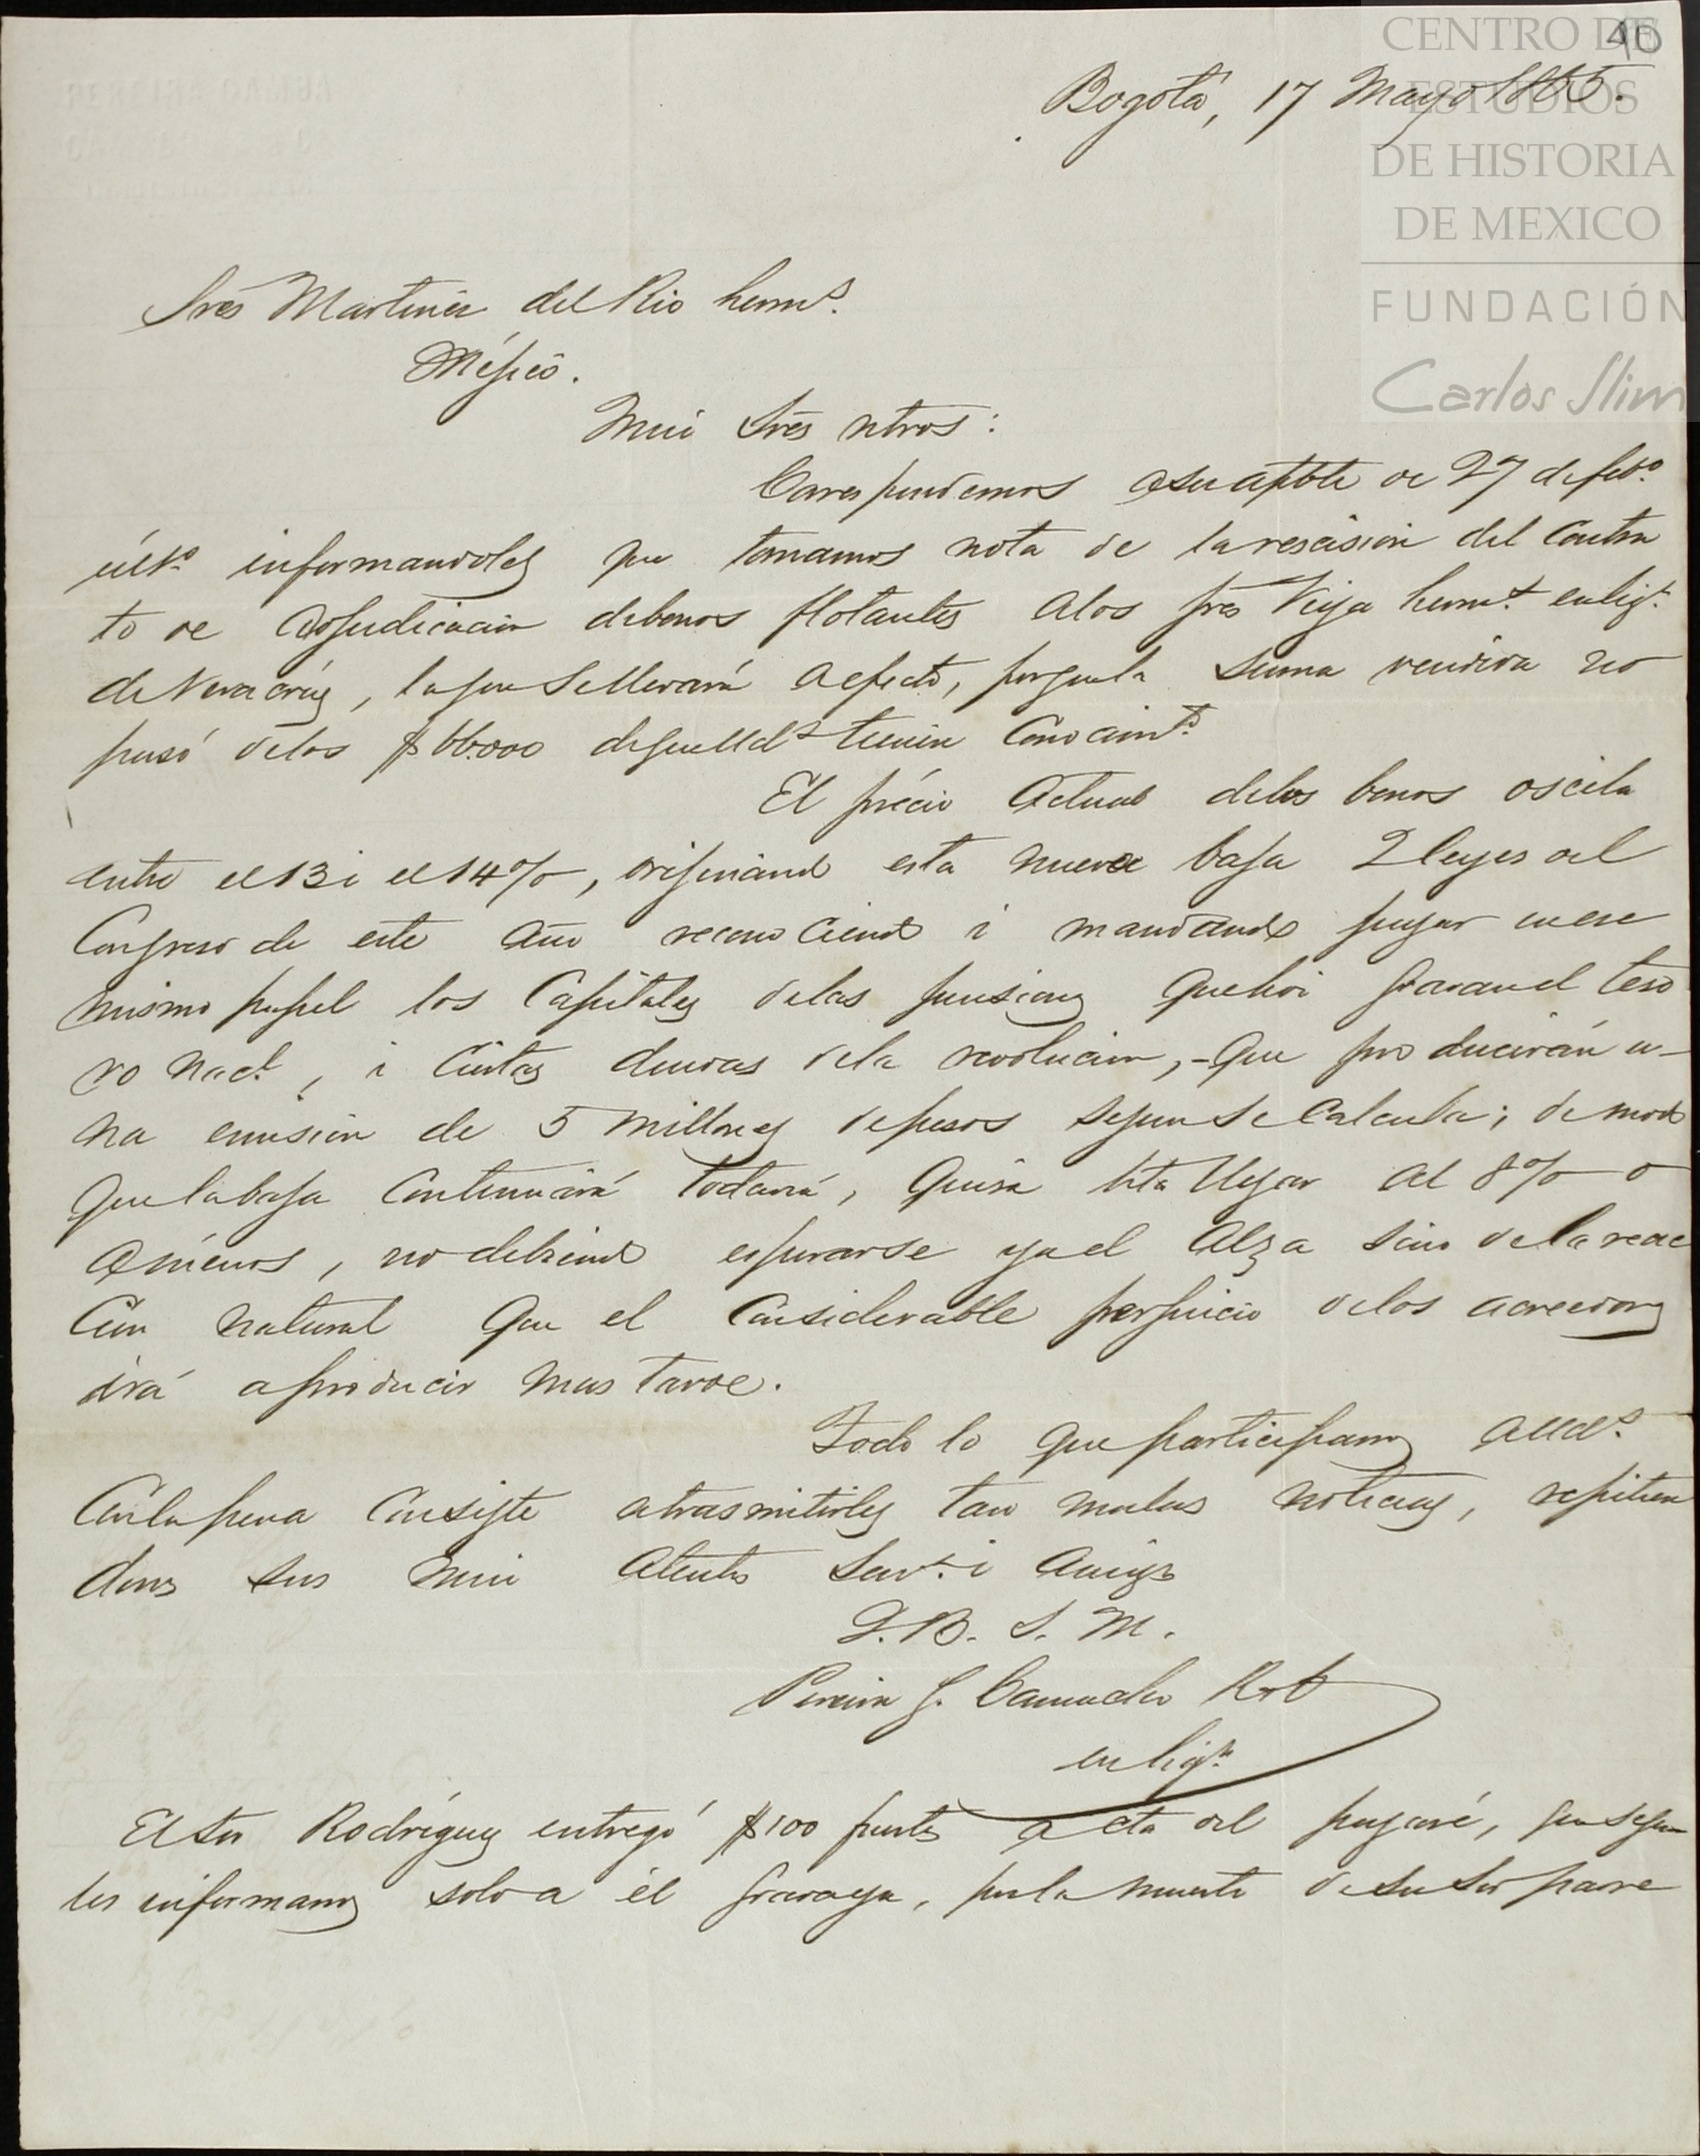 40
CENTRO DE
ESTUDIOS
DE HISTORIA
DE MEXICO
FUNDACIÓN
Carlos Slim
Bogotá, 17 Mayo 1865.
Sres Martinez del Rio herms.
Méjico.
Mui Sres ntros:
Correspondemos a su apble de 27 de febo.
últo. informandoles que tomamos nota de la rescision del contra
to de adjudicacion de bonos flotantes a los sres Viya herms. en liqn.
de Veracrúz, la que se llevará a efecto, porque la suma vendida no
pasó de los $ 66.000 de que Uds tienen conocimto.
El précio actual de los bonos oscila
entre el 13 i el 14%, orijinando esta nueva baja 2 leyes del
Congreso de este año reconociendo i mandando pagar en ese
mismo papel los Capitales de las pensiones que hoi gravan el teso
ro nacl., i ciertas deudas de la revolucion, - que producirán u-
na emision de 5 millones de pesos segun se calcula; de modo
que la baja continuará todavia, quizá hta llegar al 8% o
a ménos, no debiendo esperarse ya el alza sino de la reac
cion natural que el considerable perjuicio de los acreedores
irá a producir mas tarde.
Todo lo que participamos a Uds.
con la pena consigte a trasmitirles tan malas noticias, repitien
donos sus mui atentos servs. i amigos
Q. B. S. M.
Pereira G. Camacho R
en liqn.
El Sor Rodríguez entregó $100 fuertes a cta del pagaré, que segun
les informamos solo a él grava ya, por la muerte de su Sor padre